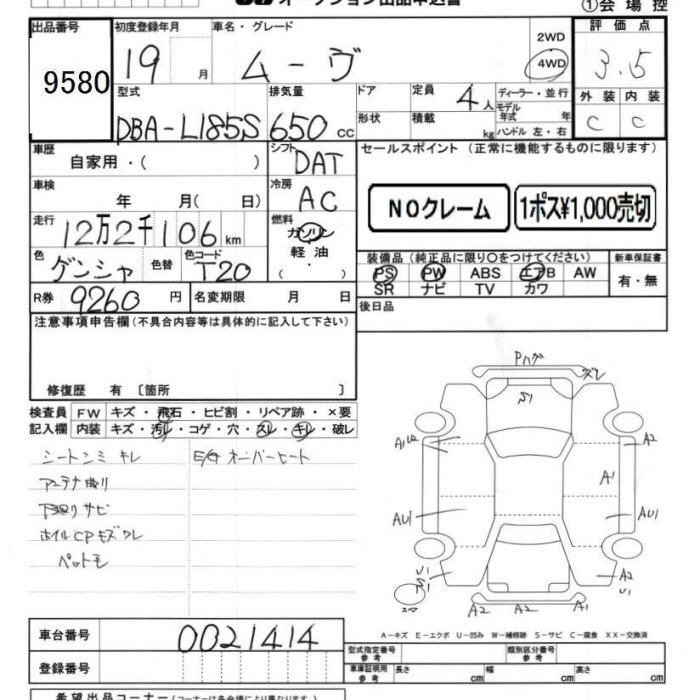 オークション出品申込書
①会場控
出品番号 初度登録年月 車名・グレード 2WD 4WD 評価点
9580 19 月 ムーヴ 3.5
型式 排気量 ドア 定員 4人 ディーラー・並行 外装 内装
DBA-L185S 650 cc 形状 積載 kg モデル年式 年 ハンドル 左・右 C C
車歴 自家用・( ) シフト DAT セールスポイント (正常に機能するものに限ります)
車検 年 月( 日) 冷房 AC NOクレーム 1ポス¥1,000売切
走行 12万2千106km 燃料 ガソリン 軽油 ・ ( )
色 ゲンシャ 色替 色コード T20 装備品 (純正品に限り○をつけてください) 新車保証書
PS PW ABS エアB AW 有・無
SR ナビ TV カワ
R券 9260円 名変期限 月 日 後日品
注意事項申告欄(不具合内容等は具体的に記入して下さい)
修復歴 有 〔箇所 〕
検査員 FW キズ・飛石・ヒビ割・リペア跡・×要
記入欄 内装 キズ・汚レ・コゲ・穴・スレ・キレ・破レ
シートシミ キレ E/G オーバーヒート
アンテナ曲り
下廻りサビ
ホイルCPキズワレ
ペットモ
Pハゲ ズレ
S1
A1U2 A2
A1
AU1 AU1
U1 A2 U1
スペア A2 A2 A1
A-キズ E-エクボ U-凹み W-補修跡 S-サビ C-腐食 XX-交換済
車台番号 0021414
型式指定番号 参考 類別区分番号 参考
登録番号 車庫証明用 参考 長さ cm 幅 cm 高さ cm
希望出品コーナー(コーナーは各会場により異なります)